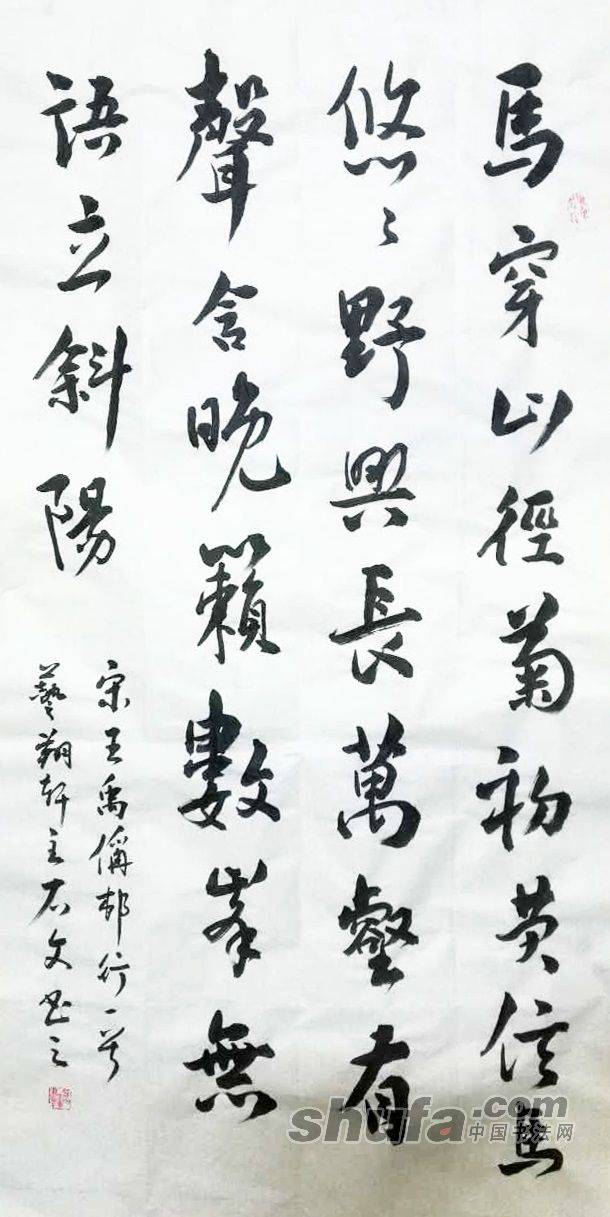 馬穿山徑菊初黄信馬
悠〻野興長萬壑有
聲含晚籟數峯無
語立斜陽
宋王禹偁邨行一首
藝翔軒主石文书之
shufa.com
中国书法网